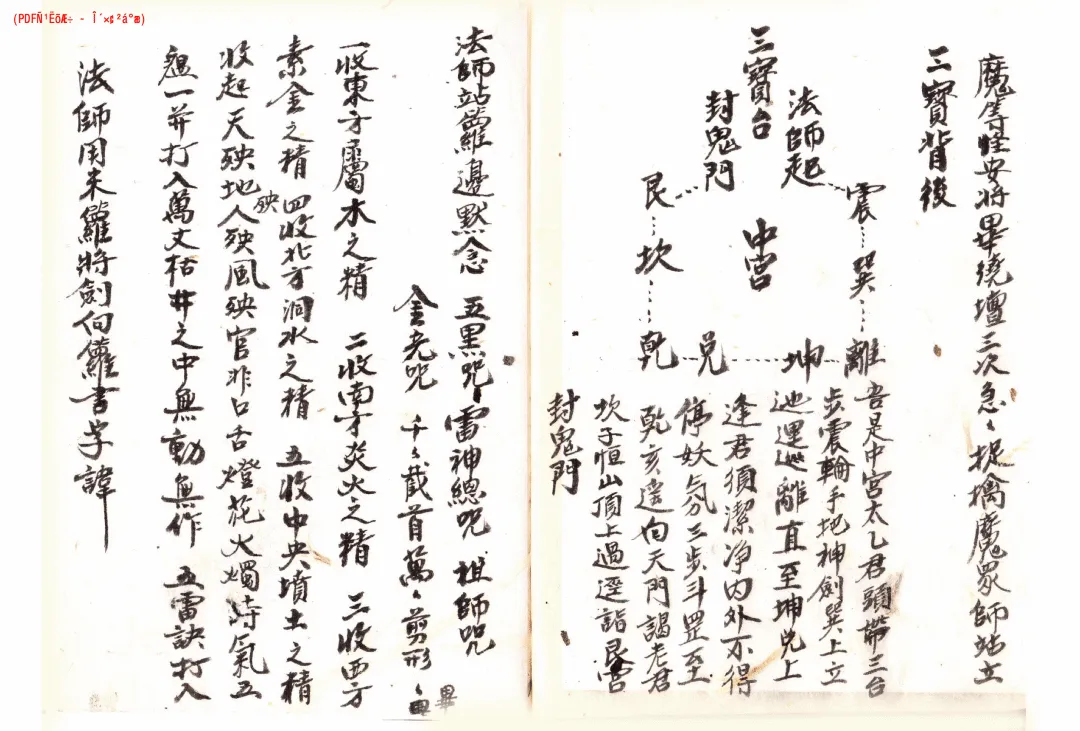 魔等怪安将畢繞壇三次急々捉擒魔眾師站立
三寶背後
三寶台
法師起
封鬼門
震
巽
離
坤
兌
乾
坎
艮
中宮
吾是中宮太乙君頭帶三台
步震輪手把神劍巽上立
迆運巡離直至坤兌上
逢君須潔净内外不得
停妖氛三步斗罡至
乾亥遙向天門謁老君
坎子恒山頂上過逕詣艮宮
封鬼門
法師站籮邊默念 五黑咒 雷神總咒 祖師咒
金光咒 千々截首萬々剪形々畢
一收東方屬木之精 二收南方炎火之精 三收西方
素金之精 四收北方洞水之精 五收中央墳土之精
收起天殃地殃人殃風殃官非口舌燈花火燭時氣五
瘟一并打入萬丈枯井之中無動無作 五雷訣打入
法師用米籮將劍向籮書字諱